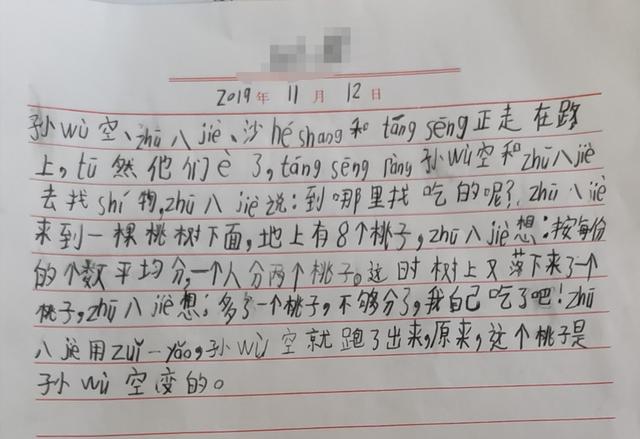 2019年 11月 12日
孙wù空、zhū八jiè、沙hé shang和táng sēng正走在路
上,tū然他们è了,táng sēng ràng孙wù空和zhū八jiè
去找shí物,zhū八jiè说:到哪里找吃的呢?zhū八jiè
来到一棵桃树下面,地上有8个桃子,zhū八jiè想:按每份
的个数平均分,一个人分两个桃子。这时树上又落下来了一个
桃子,zhū八jiè想:多了一个桃子,不够分了,我自己吃了吧!zhū
八jiè用zuǐ一yǎo,孙wù空就跑了出来,原来,这个桃子是
孙wù空变的。